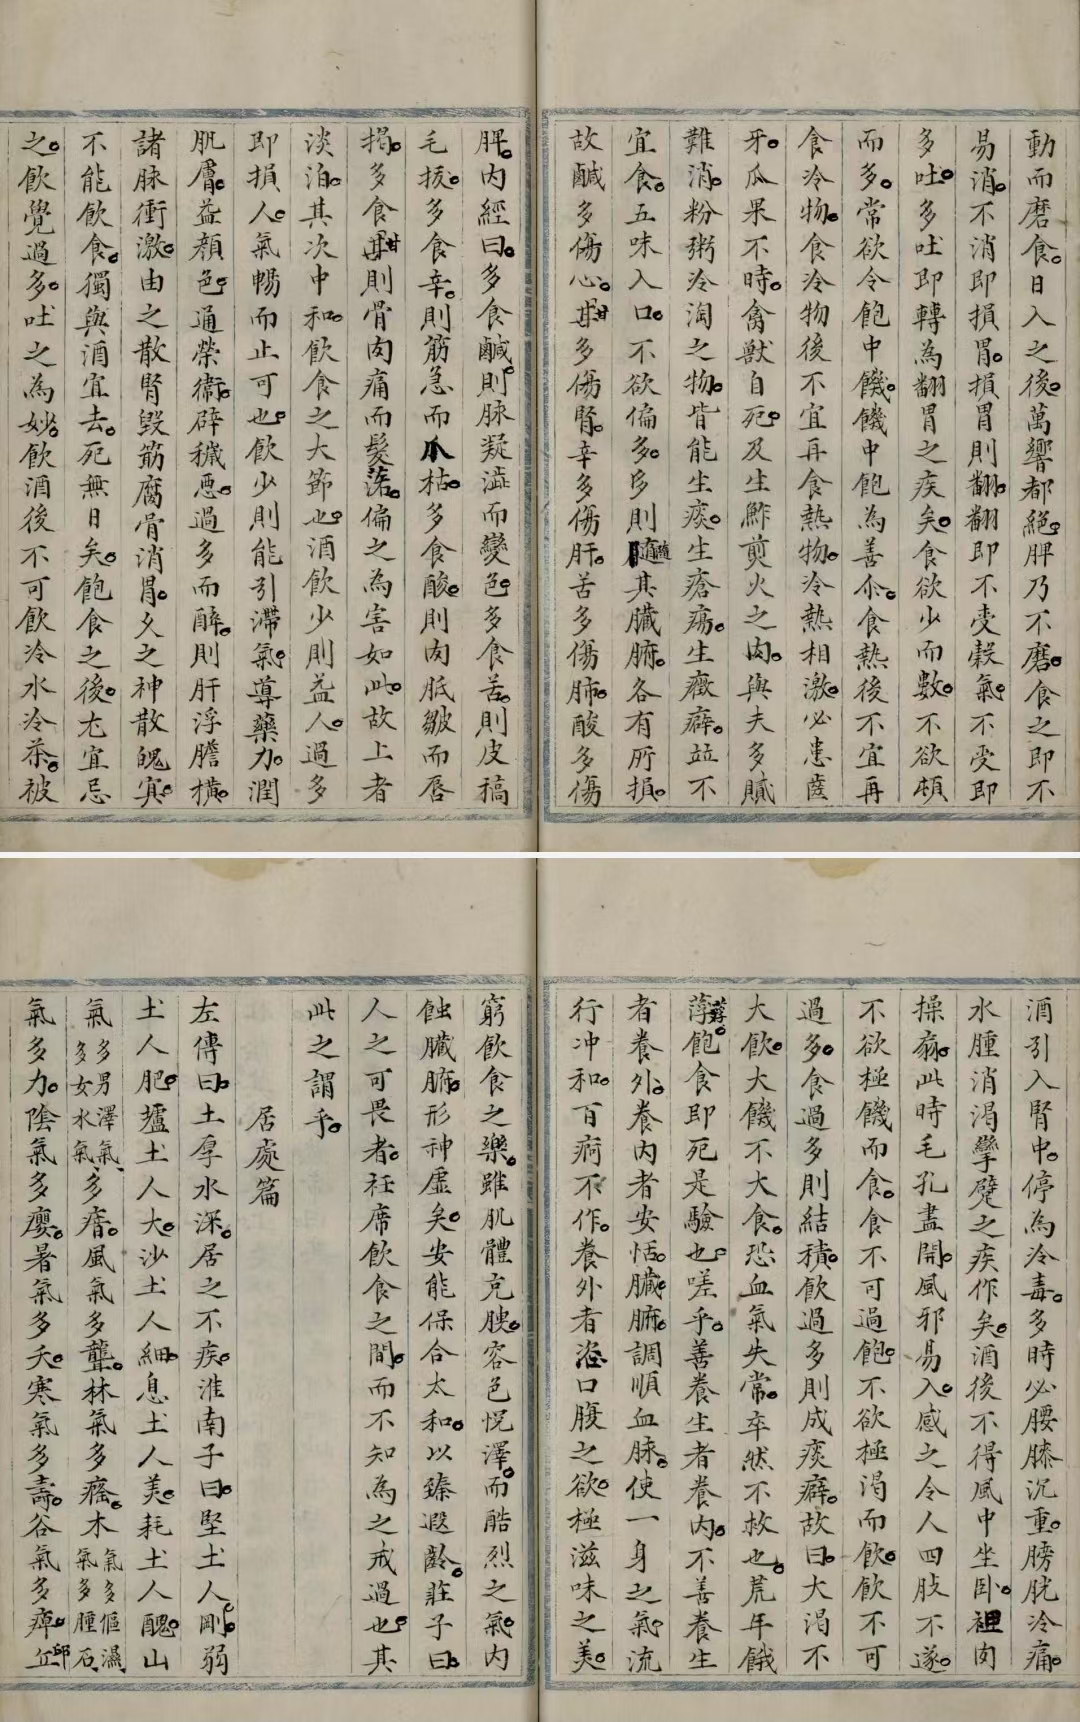 動而磨食日入之後萬響都絕脾乃不磨食之即不
易消不消即損胃損胃則翻翻即不受穀氣不受即
多吐多吐即轉為翻胃之疾矣食欲少而數不欲頓
而多常欲令飽中饑饑中飽為善尒食熱後不宜再
食冷物食冷物後不宜再食熱物冷熱相激必患𦶜
牙瓜果不時禽獸自死及生鮓煎火之肉與夫多膩
難消粉粥冷淘之物皆能生痰生瘡瘍生癥癖並不
宜食五味入口不欲偏多多則隨其臟腑各有所損
故鹹多傷心甘多傷腎辛多傷肝苦多傷肺酸多傷
脾內經曰多食鹹則脉凝澁而變色多食苦則皮稿
毛拔多食辛則筋急而爪枯多食酸則肉胝皺而唇
揭多食甘則骨肉痛而髮落偏之為害如此故上者
淡泊其次中和飲食之大節也酒飲少則益人過多
即損人氣暢而止可也飲少則能引滯氣導藥力潤
肌膚益顏色通榮衞辟穢惡過多而醉則肝浮膽橫
諸脉衝激由之散腎毀筋腐骨消胃久之神散魄冥
不能飲食獨與酒宜去死無日矣飽食之後尤宜忌
之飲覺過多吐之為妙飲酒後不可飲冷水冷茶被
酒引入腎中停為冷毒多時必腰膝沉重膀胱冷痛
水腫消渴攣躄之疾作矣酒後不得風中坐卧袒肉
操扇此時毛孔盡開風邪易入感之令人四肢不遂
不欲極饑而食食不可過飽不欲極渴而飲飲不可
過多食過多則結積飲過多則成痰癖故曰大渴不
大飲大饑不大食恐血氣失常卒然不救也荒年餓
莩飽食即死是驗也嗟乎善養生者養內不善養生
者養外養內者安恬臟腑調順血脉使一身之氣流
行冲和百痾不作養外者恣口腹之欲極滋味之美
窮飲食之樂雖肌體充腴容色悅澤而酷烈之氣內
蝕臟腑形神虛矣安能保合太和以臻遐齡莊子曰
人之可畏者衽席飲食之間而不知為之戒過也其
此之謂乎
居處篇
左傳曰土厚水深居之不疾淮南子曰堅土人剛弱
土人肥壚土人大沙土人細息土人美耗土人醜山
氣多男澤氣多女水氣多瘖風氣多聾林氣多癃木氣多傴濕氣多腫石
氣多力陰氣多癭暑氣多夭寒氣多壽谷氣多痺丘